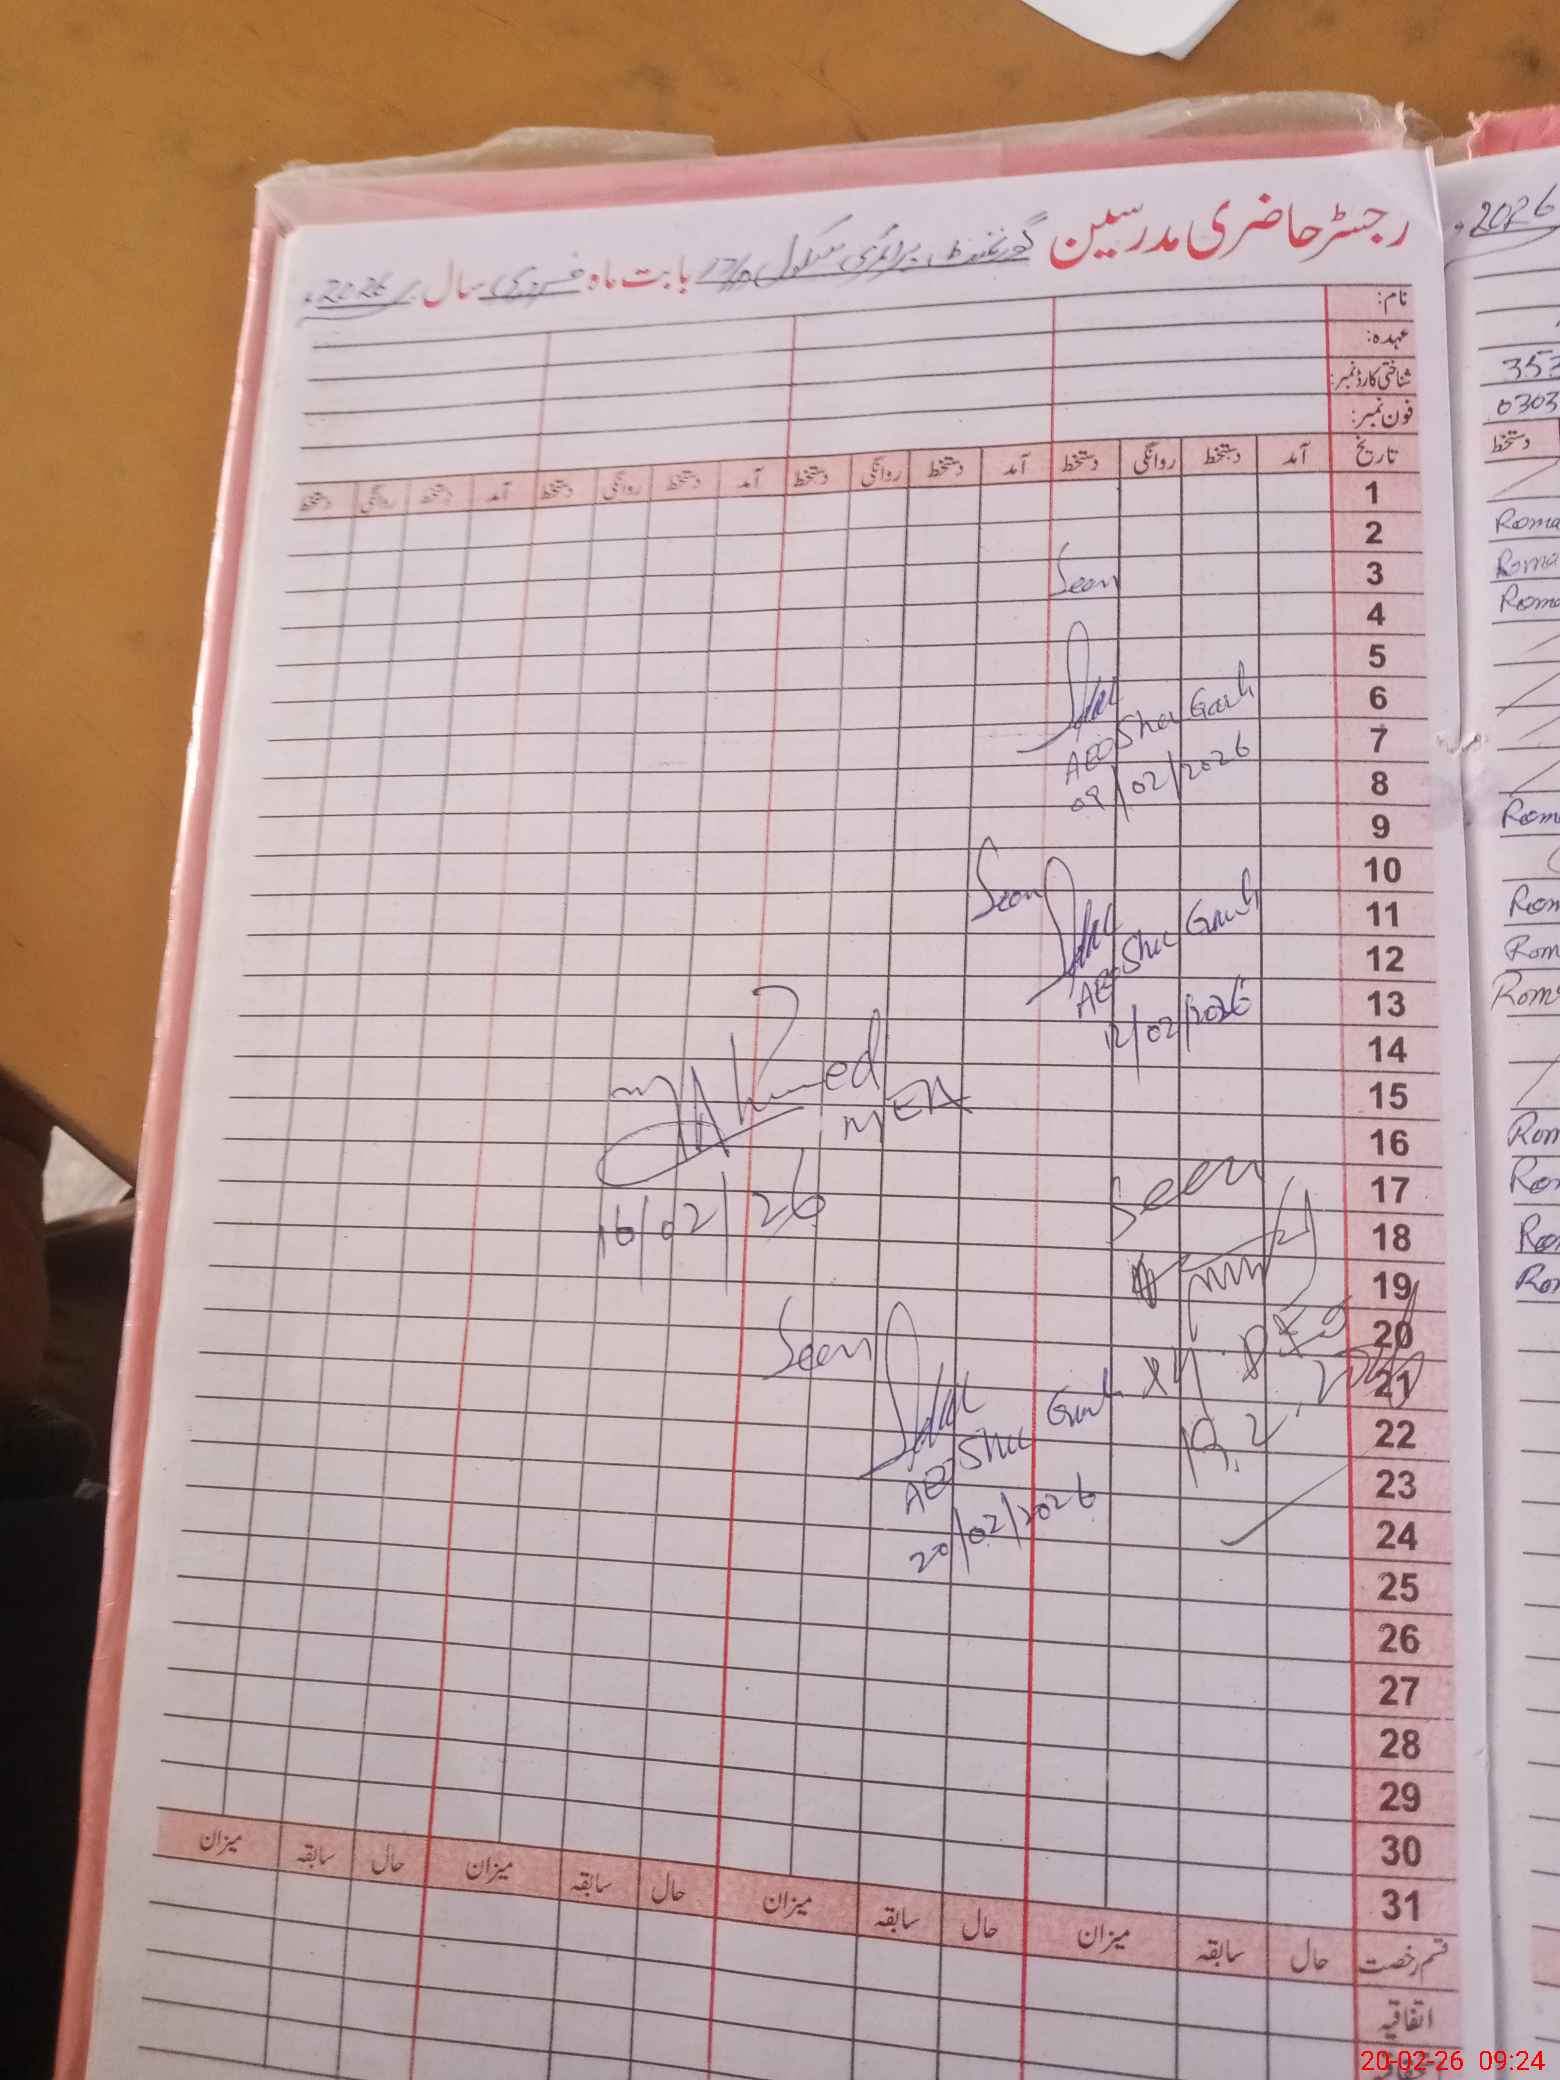 رجسٹر حاضری مدرسین گورنمنٹ پرائمری سکول بابت ماہ فروری سال 2026ء
نام:
عہدہ:
شناختی کارڈ نمبر:
فون نمبر:
تاریخ آمد دستخط روانگی دستخط آمد دستخط روانگی دستخط آمد دستخط روانگی دستخط آمد دستخط روانگی دستخط
1
2
3
Seen
4
5
6
7
AEO Sher Garh
8
09/02/2026
9
10
11
Seen
12
AEO Sher Garh
13
12/02/2026
14
15
M Ahmed
MEA
16
17
Seen
18
16/02/26
19
20
Seen
21
AEO Sher Garh
19.2.2026
22
23
24
20/02/2026
25
26
27
28
29
30
31
قسم رخصت حال سابقہ میزان حال سابقہ میزان حال سابقہ میزان حال سابقہ میزان
اتفاقیہ
2026
353
0303
دستخط
20-02-26 09:24